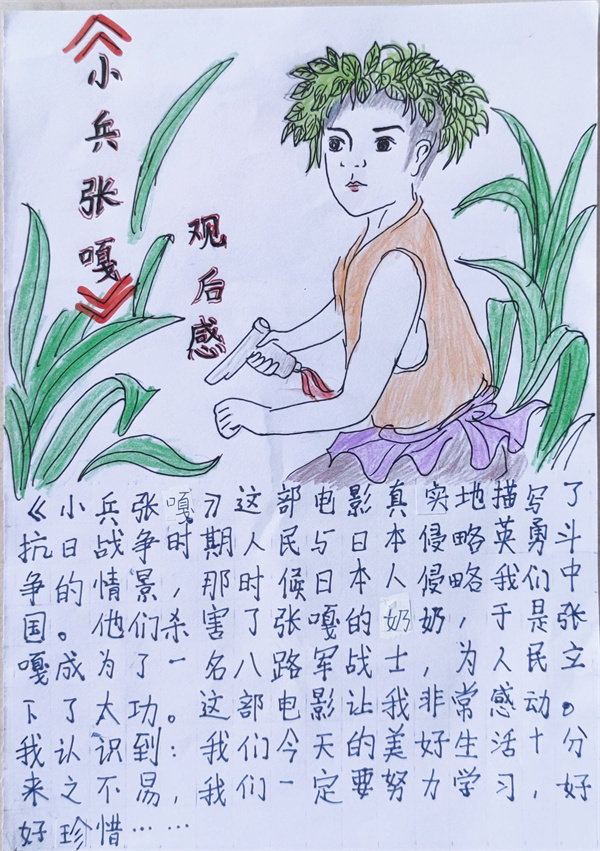 《小兵张嘎》
观后感
《小兵张嘎》这部电影真实地描写了
抗日战争时期人民与日本侵略英勇斗
争的情景，那时候日本人侵略我们中
国。他们杀害了张嘎的奶奶，于是张
嘎成为了一名八路军战士，为人民立
下了太功。这部电影让我非常感动。
我认识到：我们今天的美好生活十分
来之不易，我们一定要努力学习，好
好珍惜……